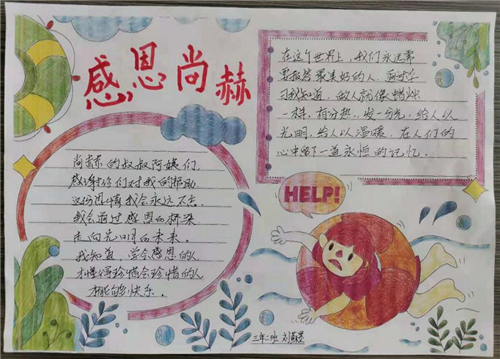 感恩尚赫
在这个世界上，我们永远需
要报答最美好的人，
我知道，做人就像蜡烛
一样，有分热，发一分光，给人以
光明，给人以温暖，在人们的
心中留下一道永恒的记忆．
尚赫的叔叔阿姨们．
感谢你们对我的帮助
这份恩情我会永远不忘．
我会通过感恩的桥梁
走向光明的未来．
我知道，学会感恩的人
才懂得珍惜会珍惜的人
才能够快乐．
HELP!
三年二班